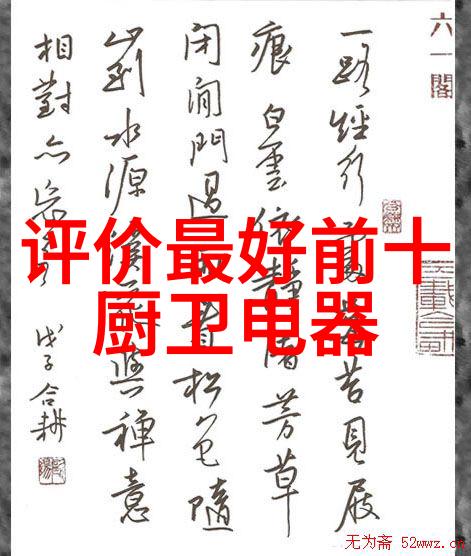 六一閣
一路經行處莓苔見屐
痕白雲依靜渚芳草
閉閒門過看松色隨
山到水源溪與禪意
相對亦忘
戊子合耕
评价最好前十
厨卫电器
无为斋 52wwz.c